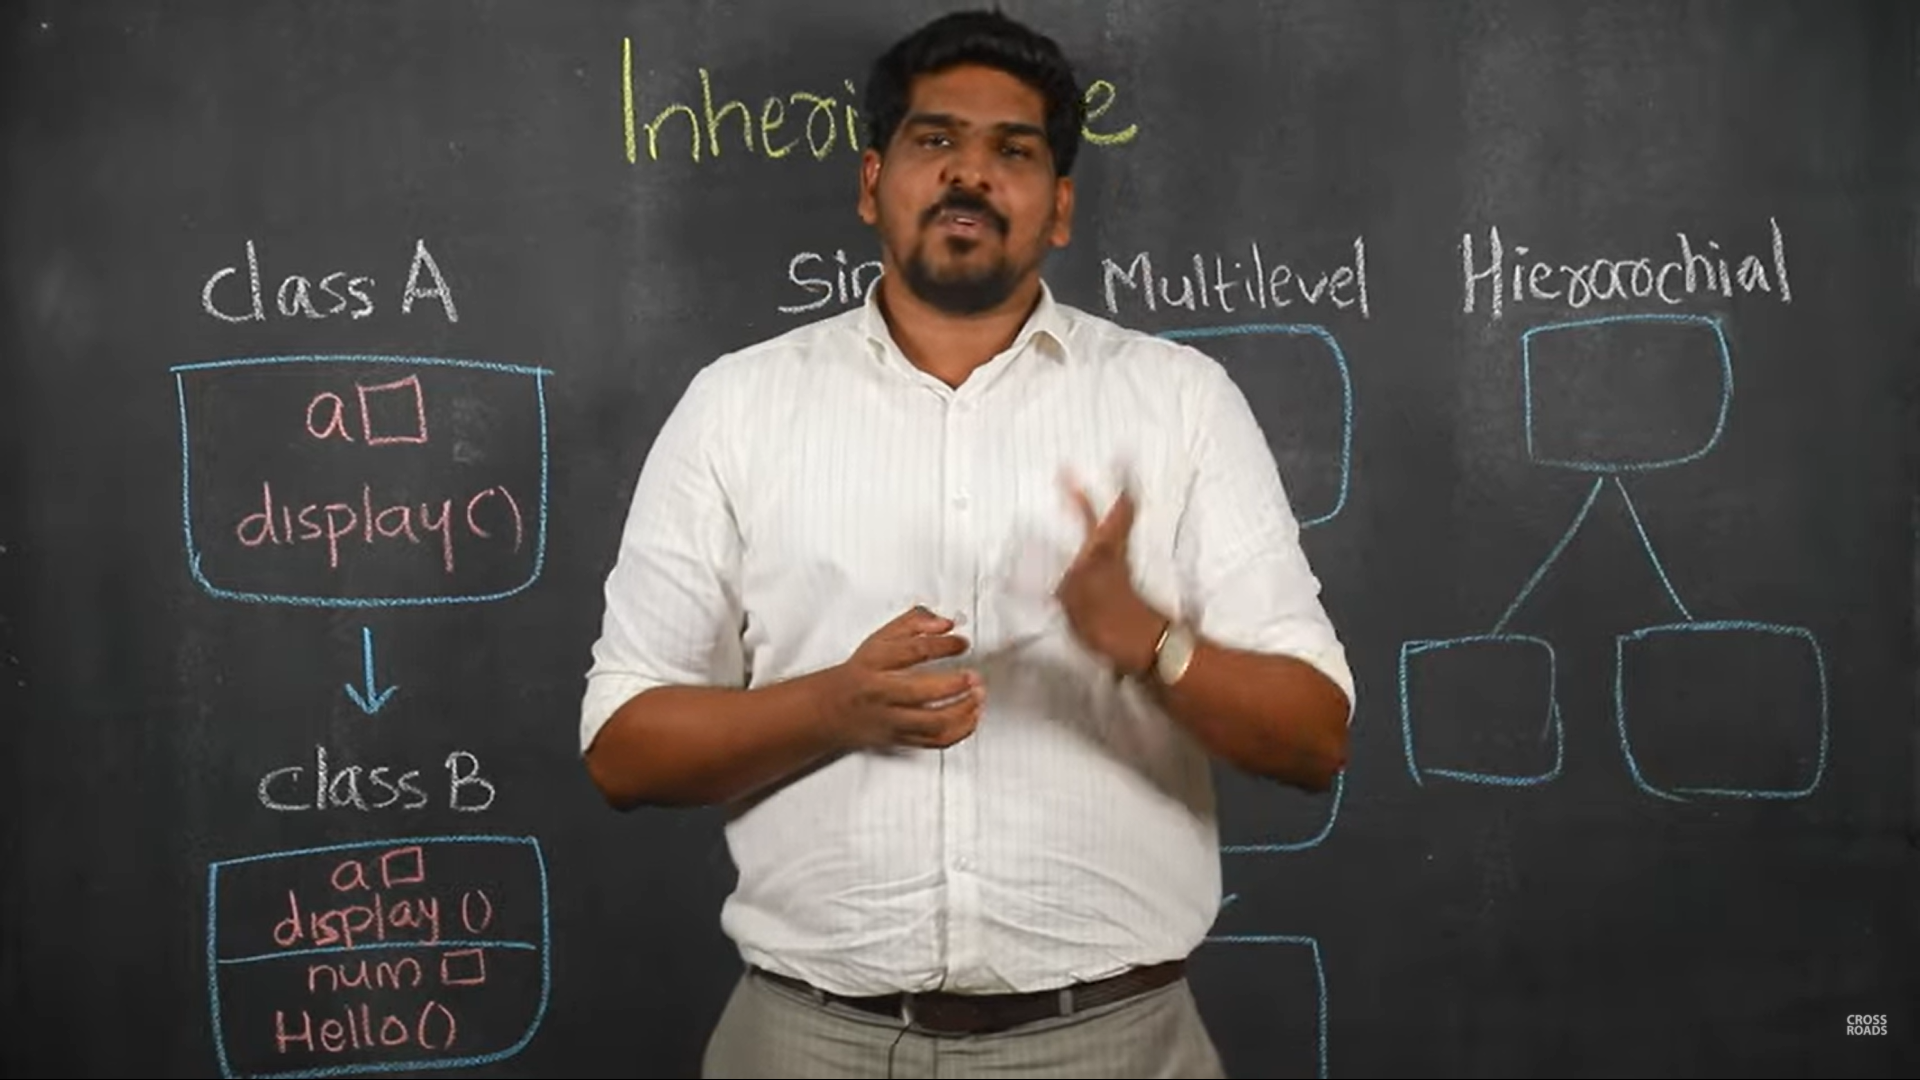 Inheri e
class A
a
display()
class B
a
display ()
num
Hello()
Sin
Multilevel
Hierarchial
CROSS
ROADS